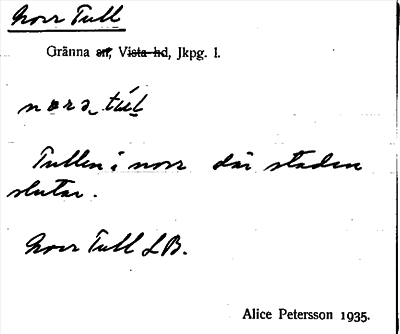 Norr Tull
Gränna sn, Vista hd, Jkpg. l.
Tullen i norr där staden
slutar.
Norr Tull LB.
Alice Petersson 1935.